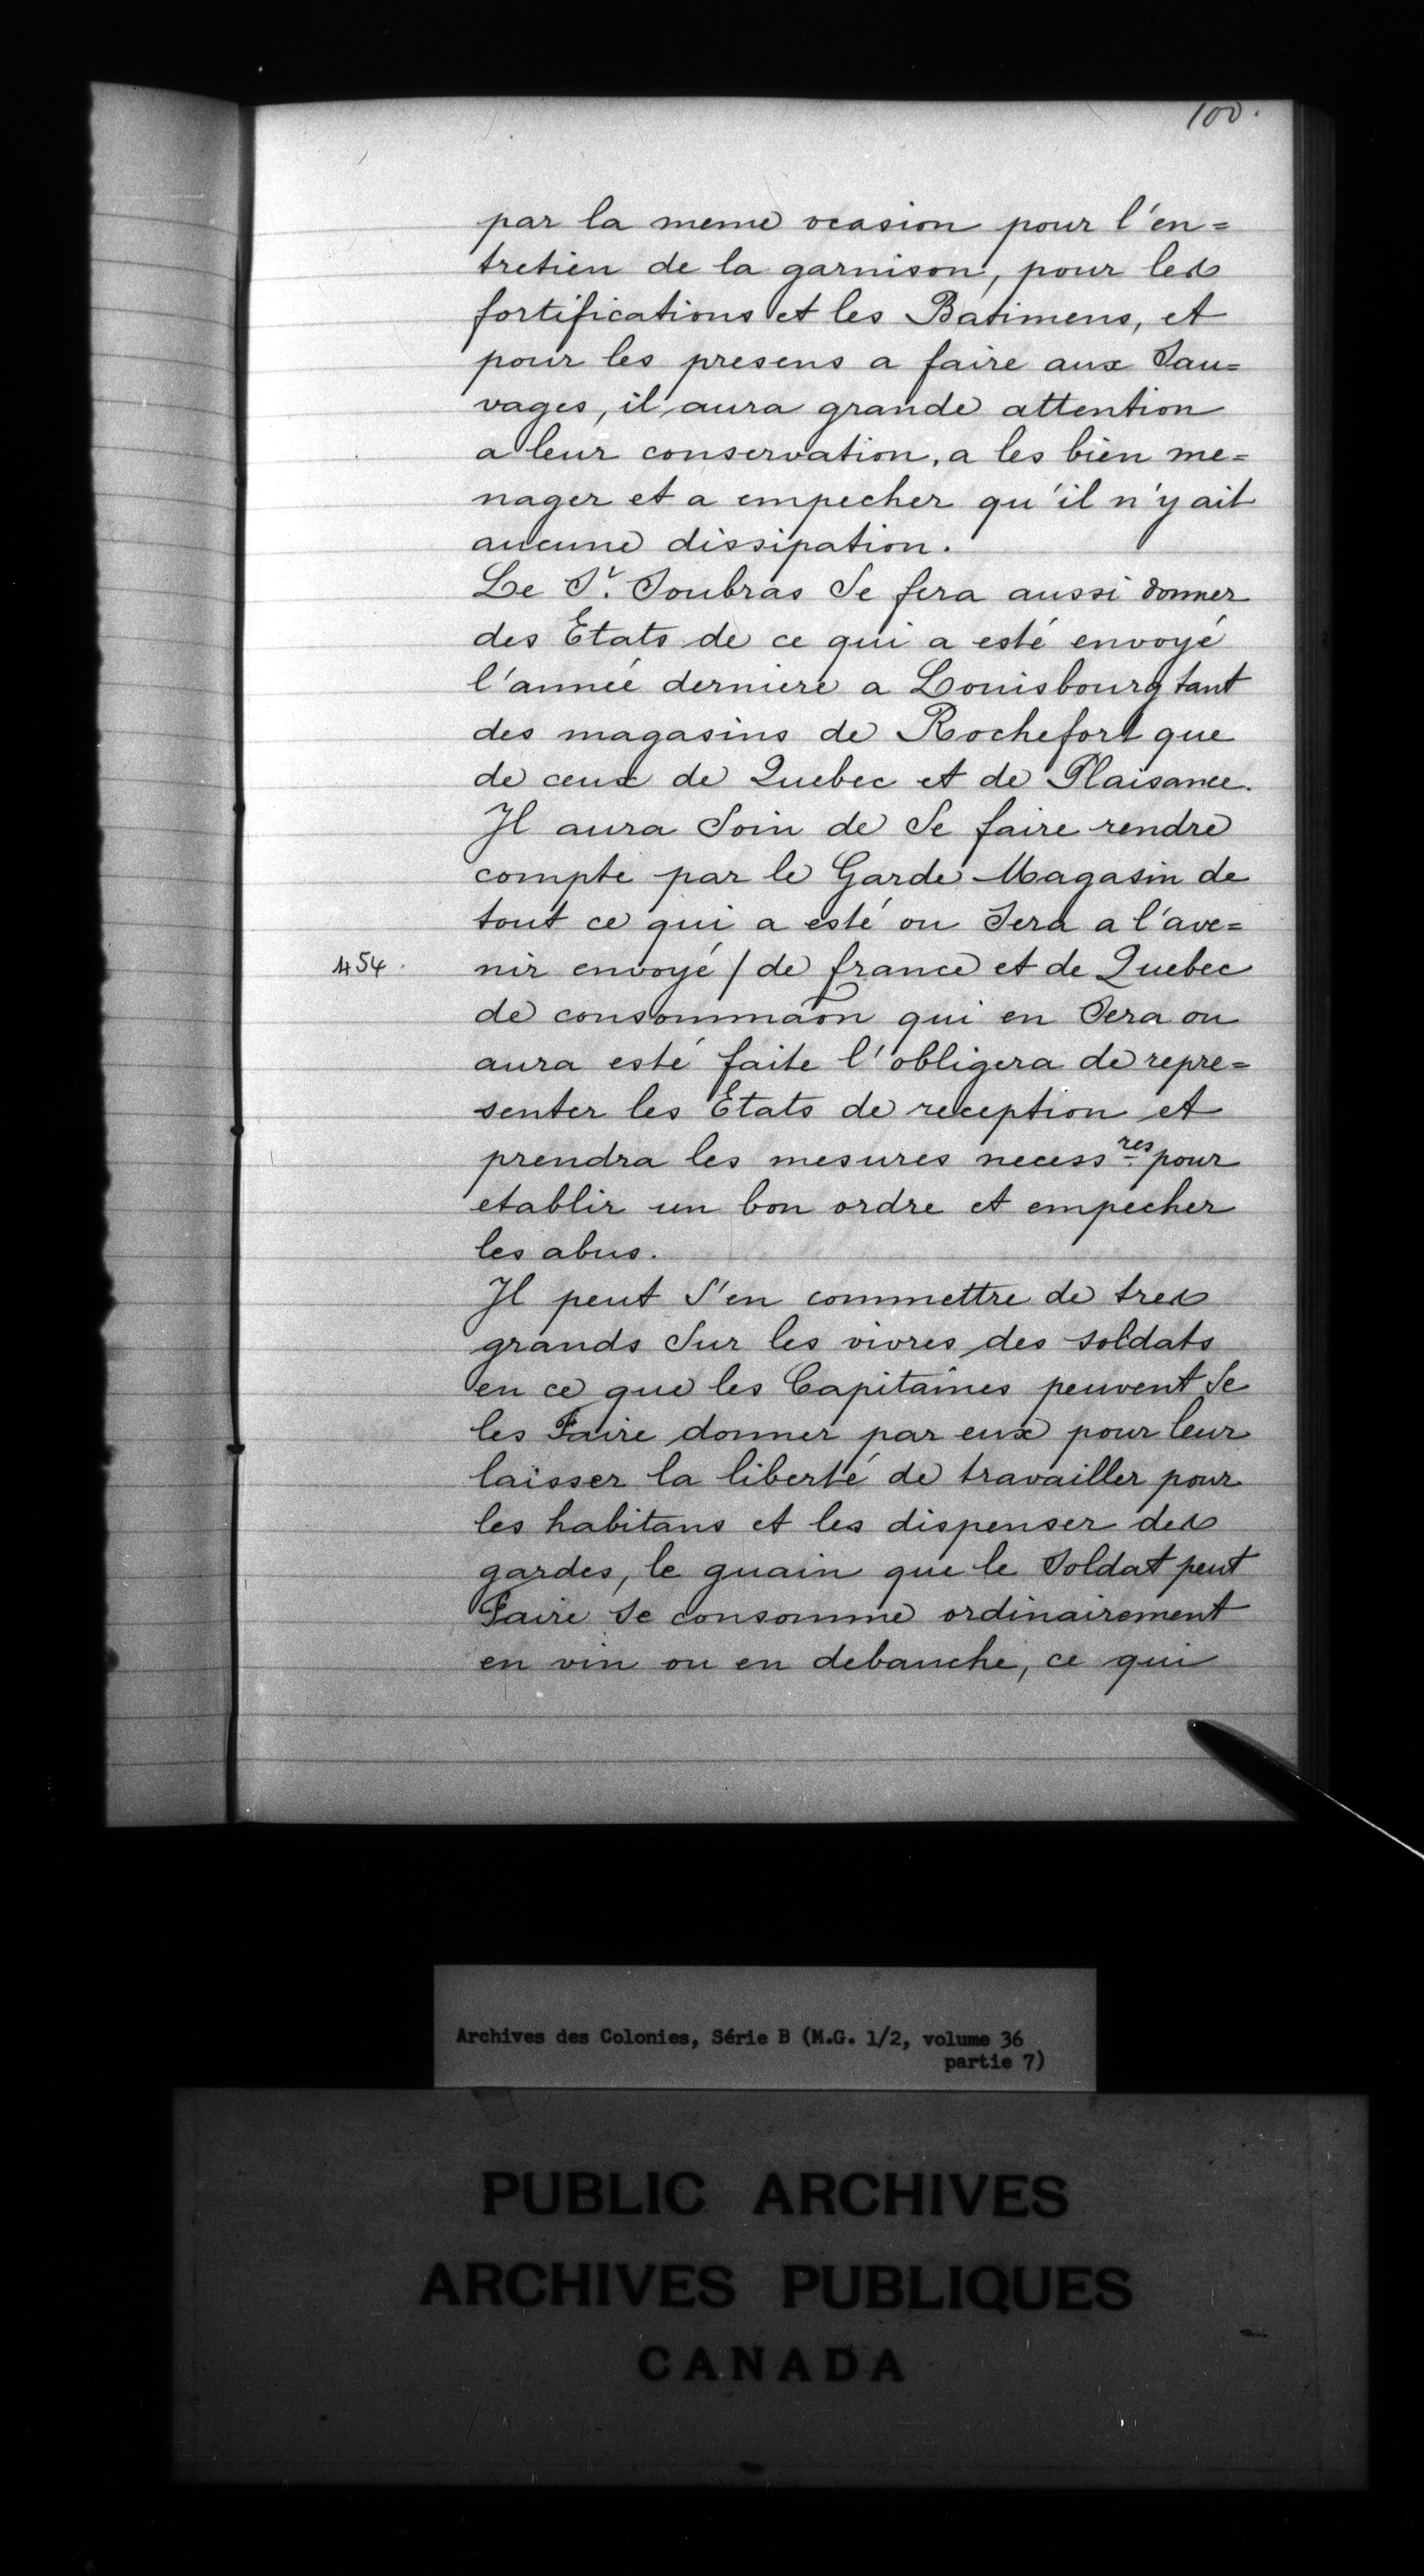 100.
par la meme ocasion pour l'en=
tretien de la garnison, pour les
fortifications et les Batimens, et
pour les presens a faire aux Sau=
vages, il aura grande attention
a leur conservation, a les bien me=
nager et a empecher qu'il n'y ait
aucune dissipation.
Le Sr. Soubras Se fera aussi donner
des Etats de ce qui a esté envoyé
l'année derniere a Louisbourg tant
des magasins de Rochefort que
de ceux de Quebec et de Plaisance.
Il aura Soin de Se faire rendre
compte par le Garde Magasin de
tout ce qui a esté ou Sera a l'ave=
454. nir envoyé / de france et de Quebec
de consommaõn qui en Sera ou
aura esté faite l'obligera de repre=
senter les Etats de reception et
prendra les mesures necessres pour
etablir un bon ordre et empecher
les abus.
Il peut S'en commettre de tres
grands Sur les vivres des soldats
en ce que les Capitaines peuvent Se
les Faire donner par eux pour leur
laisser la liberté de travailler pour
les habitans et les dispenser des
gardes, le guain que le Soldat peut
Faire Se consomme ordinairement
en vin ou en debauche, ce qui
Archives des Colonies, Série B (M.G. 1/2, volume 36
partie 7)
PUBLIC ARCHIVES
ARCHIVES PUBLIQUES
CANADA